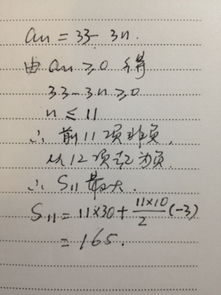 an = 33 - 3n.
由 an ≥ 0 得
33 - 3n ≥ 0
n ≤ 11
∴ 前11项非负,
从12项起为负.
∴ S11 最大.
S11 = 11×30 + \frac{11×10}{2}(-3)
= 165.